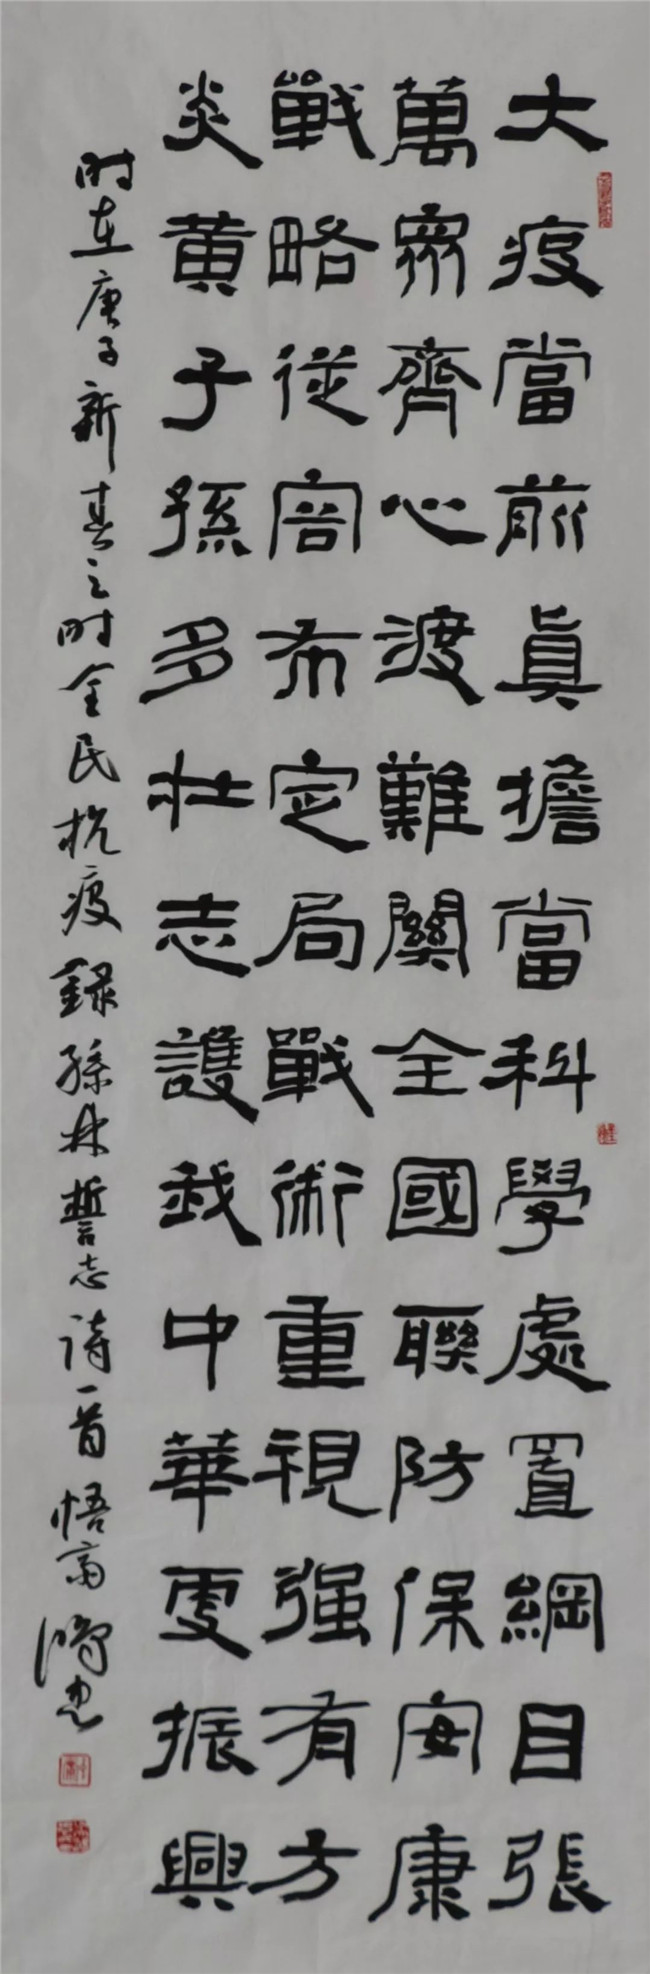 大疫當前真擔當科學處置綱目張
萬眾齊心渡難關全國聯防保安康
戰略從容布定局戰術重視强有方
炎黃子孫多壯志護我中華更振興
时在庚子新春之时全民抗疫錄孫林誓志诗一首悟斋